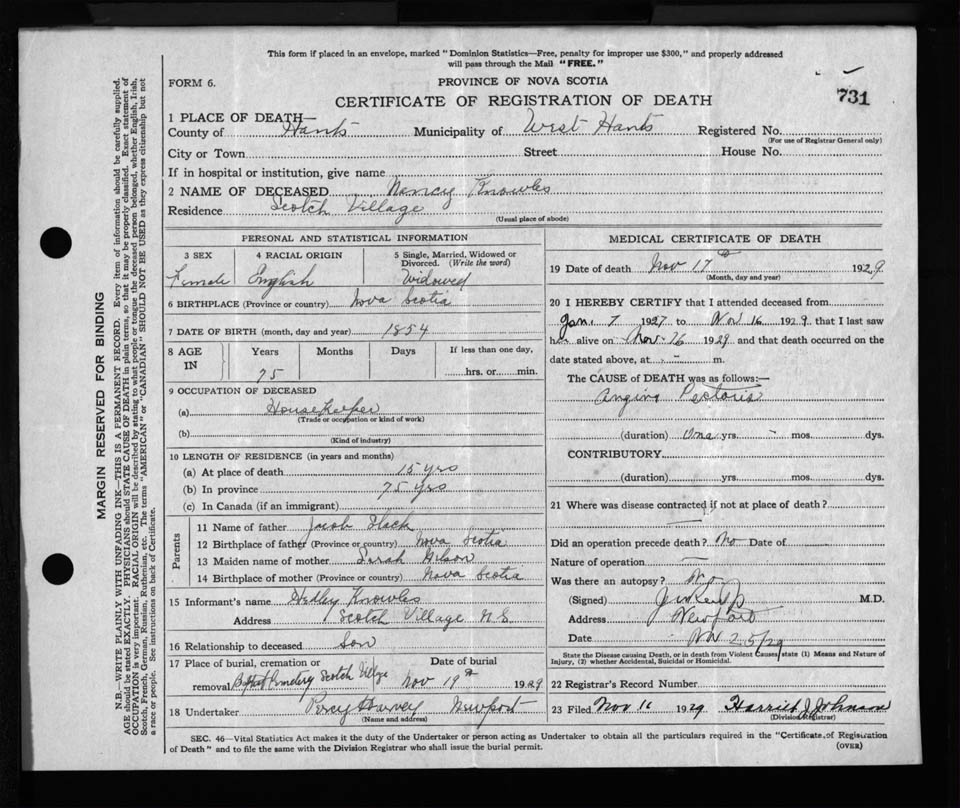 This form if placed in an envelope, marked "Dominion Statistics—Free, penalty for improper use $300," and properly addressed
will pass through the Mail "FREE."
FORM 6.
PROVINCE OF NOVA SCOTIA
CERTIFICATE OF REGISTRATION OF DEATH
731
1 PLACE OF DEATH—
County of Hants Municipality of West Hants Registered No.
(For use of Registrar General only)
City or Town Street House No.
If in hospital or institution, give name
2 NAME OF DECEASED Nancy Knowles
Residence Scotch Village
(Usual place of abode)
PERSONAL AND STATISTICAL INFORMATION
3 SEX 4 RACIAL ORIGIN 5 Single, Married, Widowed or
Divorced. (Write the word)
Female English Widowed
6 BIRTHPLACE (Province or country) Nova Scotia
7 DATE OF BIRTH (month, day and year) 1854
8 AGE IN Years Months Days If less than one day,
75 hrs. or min.
9 OCCUPATION OF DECEASED
(a) Housekeeper
(Trade or occupation or kind of work)
(b)
(Kind of industry)
10 LENGTH OF RESIDENCE (in years and months)
(a) At place of death 15 yrs
(b) In province 75 yrs
(c) In Canada (if an immigrant)
Parents
11 Name of father Jacob Slack
12 Birthplace of father (Province or country) Nova Scotia
13 Maiden name of mother Sarah Wilson
14 Birthplace of mother (Province or country) Nova Scotia
15 Informant's name Hedley Knowles
Address Scotch Village N.S.
16 Relationship to deceased Son
17 Place of burial, cremation or Date of burial
removal Baptist Cemetery Scotch Village Nov 19th 1929
18 Undertaker Percy Harvey Newport
(Name and address)
MEDICAL CERTIFICATE OF DEATH
19 Date of death Nov 17th 1929
(Month, day and year)
20 I HEREBY CERTIFY that I attended deceased from
Jan. 7 1927 to Nov 16 1929 that I last saw
her alive on Nov. 16 1929 and that death occurred on the
date stated above, at - m.
The CAUSE of DEATH was as follows:—
Angina Pectoris
(duration) One yrs. - mos. dys.
CONTRIBUTORY
(duration) yrs. mos. dys.
21 Where was disease contracted if not at place of death?
Did an operation precede death? No Date of
Nature of operation —
Was there an autopsy? No
(Signed) M.D.
Address Newport
Date Nov 25/29
State the Disease causing Death, or in death from Violent Causes state (1) Means and Nature of
Injury, (2) whether Accidental, Suicidal or Homicidal.
22 Registrar's Record Number
23 Filed Nov 16 1929 Harriet J Johnson
(Division Registrar)
SEC. 46—Vital Statistics Act makes it the duty of the Undertaker or person acting as Undertaker to obtain all the particulars required in the "Certificate of Registration
of Death" and to file the same with the Division Registrar who shall issue the burial permit.
(OVER)
MARGIN RESERVED FOR BINDING
N.B.—WRITE PLAINLY WITH UNFADING INK—THIS IS A PERMANENT RECORD. Every item of information should be carefully supplied.
AGE should be stated EXACTLY. PHYSICIANS should STATE CAUSE OF DEATH in plain terms, so that it may be properly classified. Exact statement of
OCCUPATION is very important. RACIAL ORIGIN will be described by stating to what people or tongue the deceased person belonged, whether English, Irish,
Scotch, French, German, Russian, Ruthenian, etc. The terms "AMERICAN" or "CANADIAN" SHOULD NOT BE USED as they express citizenship but not
a race or people. See instructions on back of Certificate.